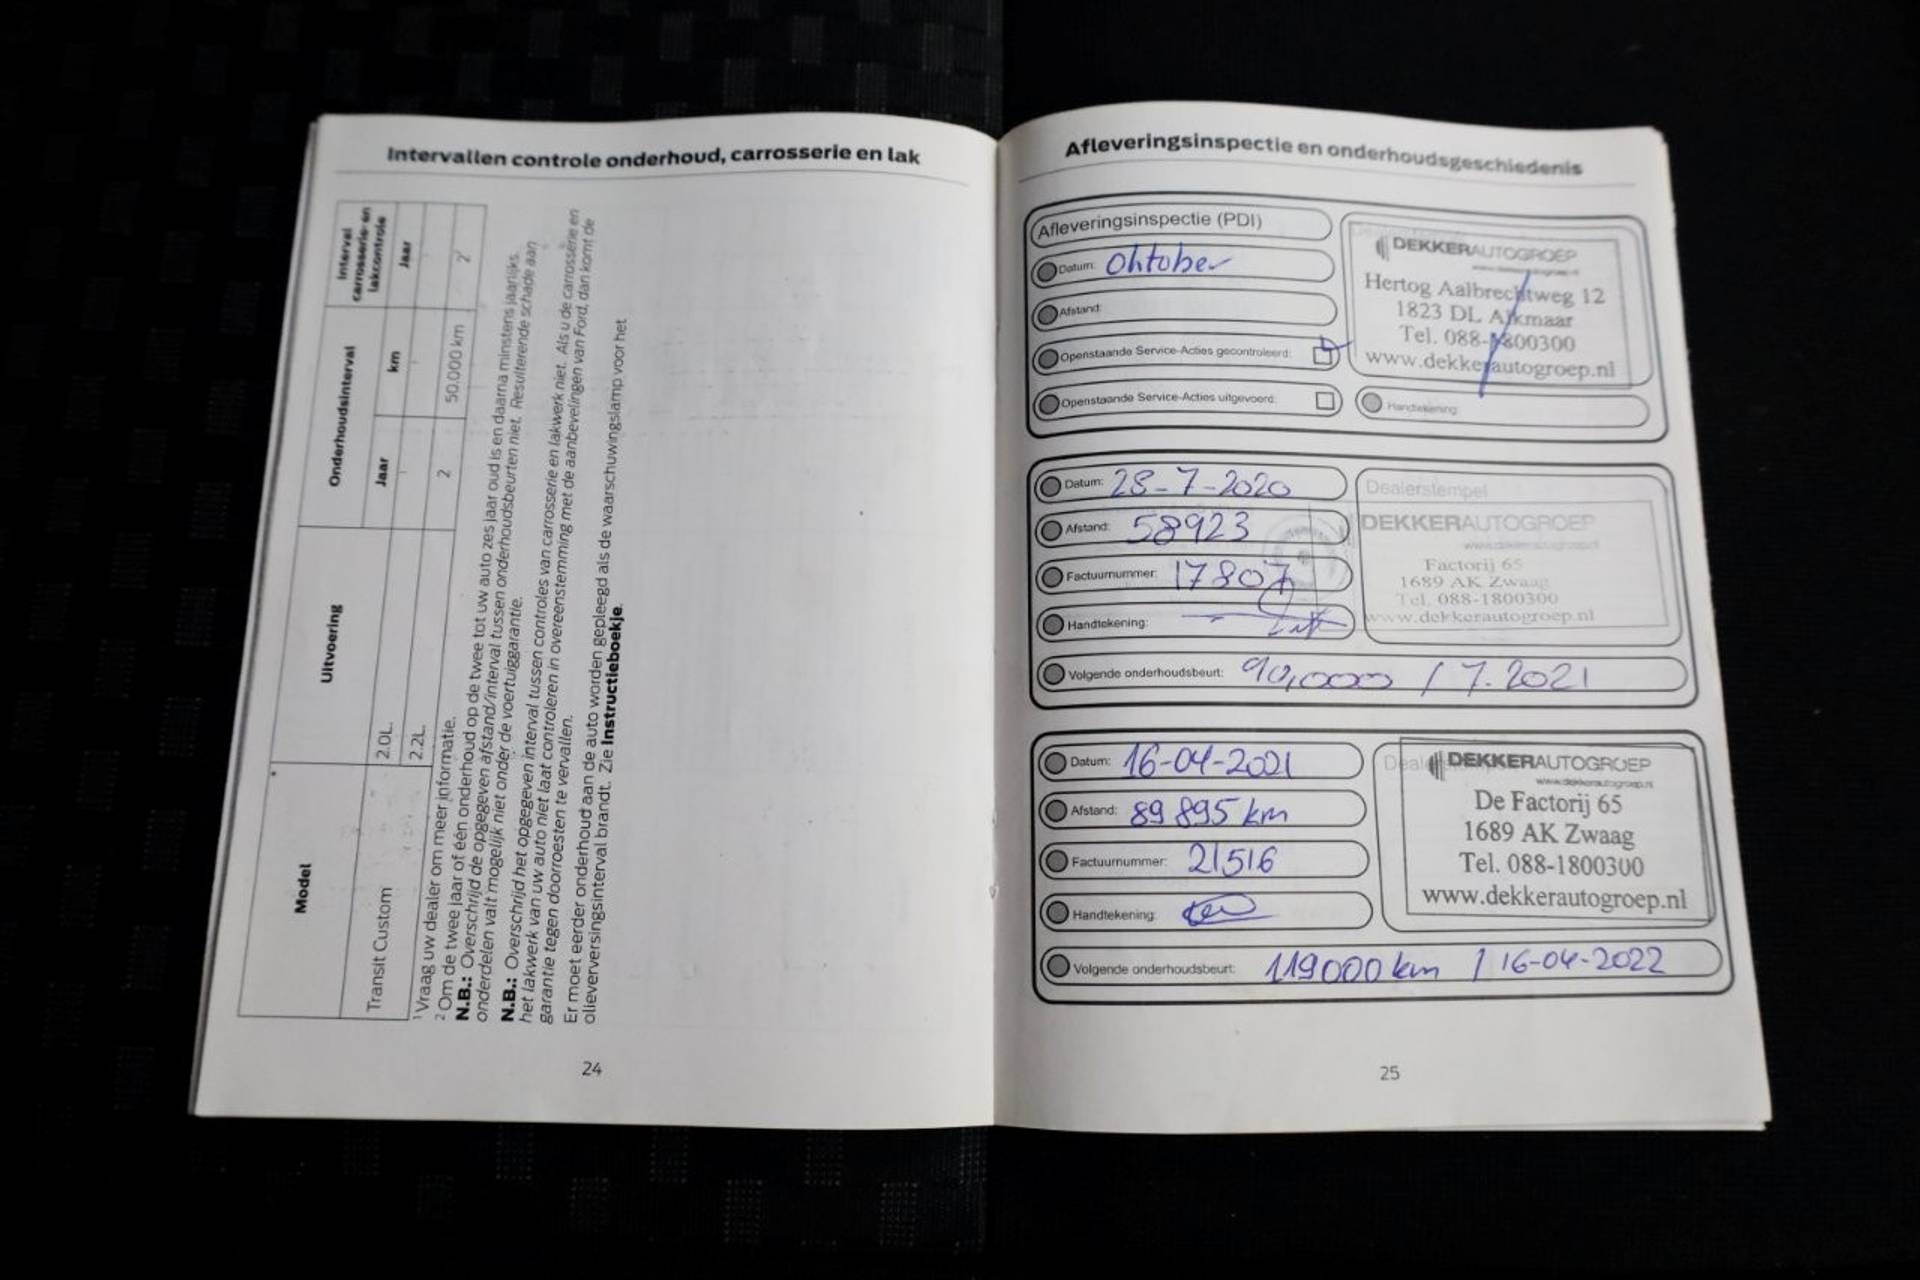 Intervallen controle onderhoud, carrosserie en lak
Model
Uitvoering
Onderhoudsinterval
Interval carrosserie- en lakcontrole
Jaar
km
Jaar
Transit Custom
2.0L.
2.2L.
2
50.000 km
2
1 Vraag uw dealer om meer informatie.
2 Om de twee jaar of één onderhoud op de twee tot uw auto zes jaar oud is en daarna minstens jaarlijks.
N.B.: Overschrijd de opgegeven afstand/interval tussen onderhoudsbeurten niet. Resulterende schade aan
onderdelen valt mogelijk niet onder de voertuiggarantie.
N.B.: Overschrijd het opgegeven interval tussen controles van carrosserie en lakwerk niet. Als u de carrosserie en
het lakwerk van uw auto niet laat controleren in overeenstemming met de aanbevelingen van Ford, dan komt de
garantie tegen doorroesten te vervallen.
Er moet eerder onderhoud aan de auto worden gepleegd als de waarschuwingslamp voor het
olieverversingsinterval brandt. Zie Instructieboekje.
24
Afleveringsinspectie en onderhoudsgeschiedenis
Afleveringsinspectie (PDI)
Datum: Oktober
Afstand:
Openstaande Service-Acties gecontroleerd:
Openstaande Service-Acties uitgevoerd:
DEKKERAUTOGROEP
Hertog Aalbrechtweg 12
1823 DL Alkmaar
Tel. 088-1800300
www.dekkerautogroep.nl
Handtekening:
Datum: 28-7-2020
Afstand: 58923
Factuurnummer: 17807
Handtekening:
Volgende onderhoudsbeurt: 90,000 / 7.2021
Dealerstempel
DEKKERAUTOGROEP
www.dekkerautogroep.nl
Factorij 65
1689 AK Zwaag
Tel. 088-1800300
www.dekkerautogroep.nl
Datum: 16-04-2021
Afstand: 89 895 km
Factuurnummer: 21516
Handtekening:
Volgende onderhoudsbeurt: 119000 km / 16-04-2022
DEKKERAUTOGROEP
www.dekkerautogroep.nl
De Factorij 65
1689 AK Zwaag
Tel. 088-1800300
www.dekkerautogroep.nl
25